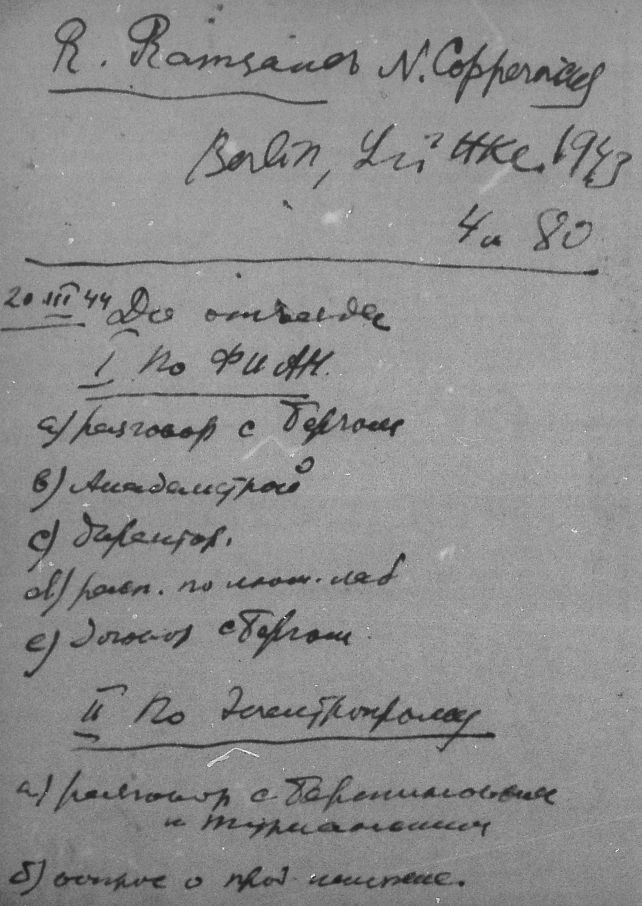 R. Ramsauer N. Coppernicus
Berlin, Lüttke. 1943
4u 80
20 III 44 До отъезда
I По ФИАН.
а) разговор с Бергом
в) Академстрой
с) директор.
d) расп. по лаб
е) договор с Бергом
II По Электропрому
а) разговор с
и
б) вопрос о